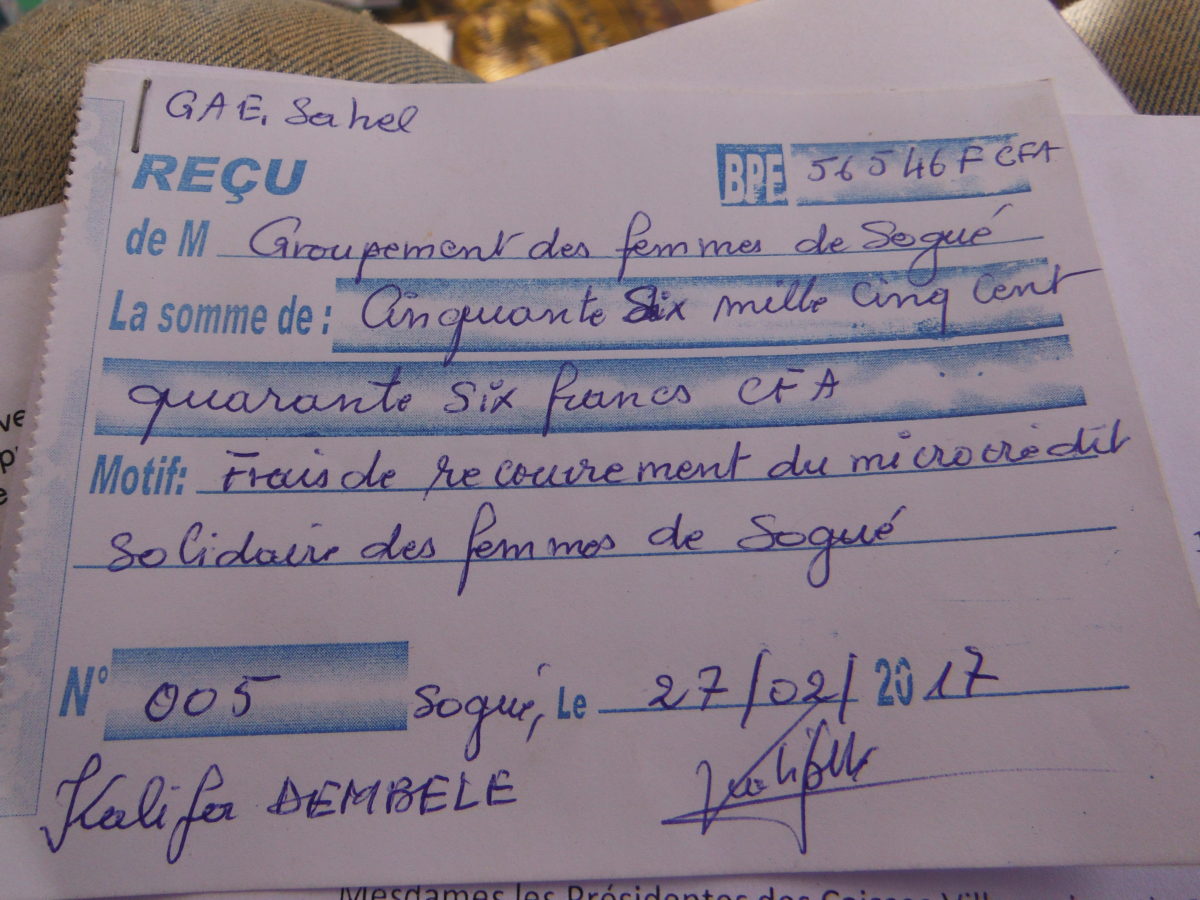 GAE, Sahel
REÇU
BPF 56546 F CFA
de M Groupement des femmes de Sogué
La somme de : Cinquante Six mille Cinq Cent
quarante Six francs CFA
Motif: Frais de recouvrement du microcrédit
Solidaire des femmes de Sogué
N° 005 Sogué, Le 27/02/2017
Kalifa DEMBELE
Mesdames les Présidentes des Caisses